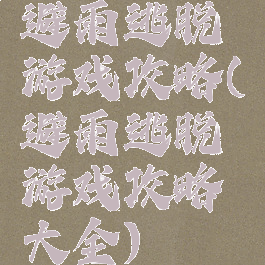 避雨逃脱
游戏攻略(
避雨逃脱
游戏攻略
大全)